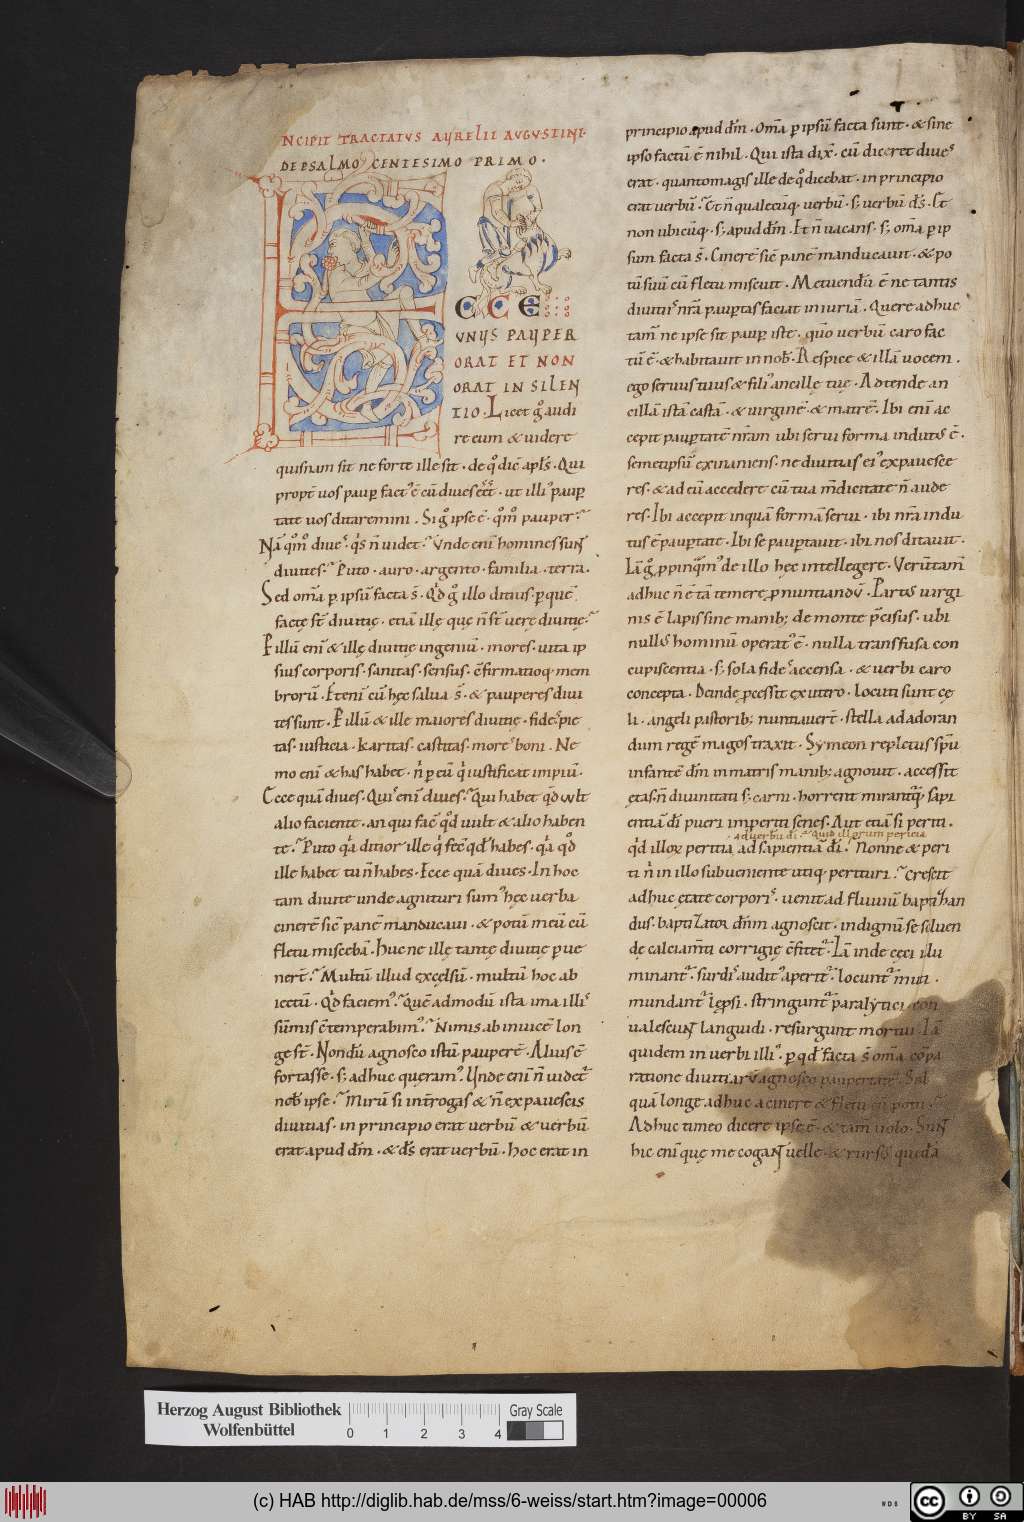 NCIPIT TRACTATVS AVRELII AVGVSTINI·
DE PSALMO CENTESIMO PRIMO·
ECCE
VNVS PAVPER
ORAT ET NON
ORAT IN SILEN
TIO· Licet g̊ audi
re eum & uidere
quisnam sit ne forte ille sit· de q̊ dic̄ apl̄s· Qui
propt̄ uos paup̄ fact᾿ ē cū diues eēt· ut illi᾿ paup̄
tate uos ditaremini. Si g̊ ipse ē· qm̊o pauper?
Nā qm̊o diue᾿· q̊s n̄ uidet? Vnde enī homines sun̄
diuites? Puto· auro· argento· familia· terra.
Sed om̄a p̱ ipsū facta s̄· Qd̄ g̊ illo ditius· p̱ quē
factę st̄ diuitię· etiā illę quę n̄ st̄ uerę diuitię?
P̱ illū enī & illę diuitię ingeniū· mores· uita ip
sius corporis· sanitas· sensus· c̄firmatioq· mem
brorū· Etenī cū hęc salua s̄· & pauperes diui
tes sunt· P̱ illū & ille maiores diuitię· fide᾿· pie
tas· iusticia· karitas· castitas· more᾿ boni· Ne
mo enī & has habet· n̄ p̱ eū q̇ iustificat impiū·
Ecce quā diues· Qui᾿ enī diues? Qui habet qd̄ uult
alio faciente· an qui fac̄ qd̄ uult & alio haben
te? Puto q̇a ditior ille q̇ fec̄ qd̄ habes· q̇a qd̊
ille habet tu n̄ habes· Ecce quā diues· In hoc
tam diuite unde agnituri sum᾿ hęc uerba
cinerē sic̄ panē manducaui· & potū meū cū
fletu miscebā· Hucne illę tantę diuitię p̱ue
nerē? Multū illud excelsū· multū hoc ab
iectū· Qd̄ faciem᾿? Quē admodū ista ima illi᾿
sūmis c̄temperabim᾿? Nimis ab inuicē lon
ge st̄· Nondū agnosco istū pauperē· Alius ē
fortasse· s; adhuc queram᾿· Vnde enī n̄ uidet᾿
nob᾿ ipse? Mirū si int̄rogas & n̄ expauescis
diuitias· in principio erat uerbū & uerbū
erat apud dm̄· & ds̄ erat uerbū· hoc erat in
principio apud dm̄· Om̄a p̱ ipsū facta sunt· & sine
ipso factū ē nihil· Qui ista dix̄· cū diceret diue᾿
erat· quantomagis ille de q̊ dicebat· in principio
erat uerbū? Et n̄ qualecūq· uerbū· s; uerbū ds̄· Et
non ubicūq· s; apud dm̄· Et n̄ uacans· s; om̄a p̱ ip
sum facta s̄· Cinerē sic̄ panē manducauit· & po
tū suū cū fletu miscuit· Metuendū ē ne tantis
diuiti᾿ nr̄a paup̱tas faciat iniuriā· Quere adhuc
tam̄ ne ipse sit paup̱ iste· quo̊ uerbū caro fac
tū ē· & habitauit in nob᾿· Respice & illā uocem·
ego seruus tuus & fili᾿ ancillę tuę· Adtende an
cillā istā castā· & uirginē· & matrē· Ibi enī ac
cepit paup̱tatē nr̄am ubi serui forma indut᾿ ē·
semetipsū exinaniens· ne diuitias ei᾿ expauesce
res· & ad eū accedere cū tua m̄dicitate n̄ aude
res· Ibi accepit inquā formā serui· ibi nr̄a indu
tus ē paup̱tate· Ibi se paup̱tauit· ibi nos ditauit·
Iā g̊ p̱pinq̇m᾿ de illo hęc intellegere· Verūtam̄
adhuc n̄ ē tā temere p̱nuntiandū· Partus uirgi
nis ē lapis sine manib; de monte p̄cisus· ubi
null᾿ hominū operat᾿ ē· nulla transfusa con
cupiscentia· s; sola fide᾿ accensa· & uerbi caro
concepta· Deinde p̱cessit ex utero· locuti sunt cę
li· angeli pastorib; nuntiauerē· stella ad adoran
dum regē magos traxit· Symeon repletus sp̄u
infantē dm̄ in matris manib; agnouit· accessit
ętas· n̄ diuinitati s; carni· horrent mirantq̄ sapi
entiā dī pueri imperiti senes· Aut etiā si periti·
ad uerbū dī? Quid illorum pericia
qd̄ illoꝝ peritia ad sapientiā dī? Nonne & peri
ti n̄ in illo subueniente utiq· perituri? Crescit
adhuc ętate corpori᾿· uenit ad fluuiū baptizan
dus· baptizator dn̄m agnoscit· indignū se soluen
dę calciam̄ti corrigię c̄fitet᾿· Iā inde cęci illu
minant᾿· surdi᾿ audit᾿ aperit᾿· locunt᾿ muti·
mundant᾿ lep̱si· stringunt᾿ paralytici· con
ualescun̄ languidi· resurgunt mortui· Iā
quidem in uerbi illi᾿· p̱ qd̄ facta s̄ om̄a cōpa
ratione diuitiarū agnosco paupertatē· Sed
quā longe adhuc a cinere & fletu in potu?
Adhuc timeo dicere ipse ē· & tam̄ uolo· Sun̄
hic enī quę me cogan̄ uelle· & rurs᾿ quedā
Herzog August Bibliothek
Wolfenbüttel
0 1 2 3 4
Gray Scale
(c) HAB http://diglib.hab.de/mss/6-weiss/start.htm?image=00006
WDB
CC BY SA